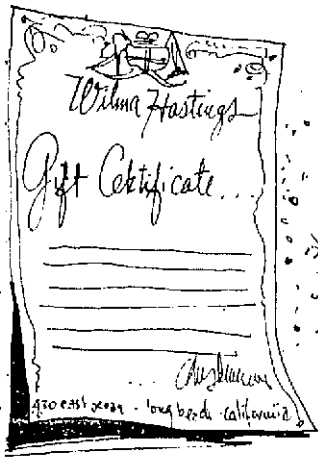 Wilma Hastings
Gift Certificate...
...
430 east ocean - long beach - california